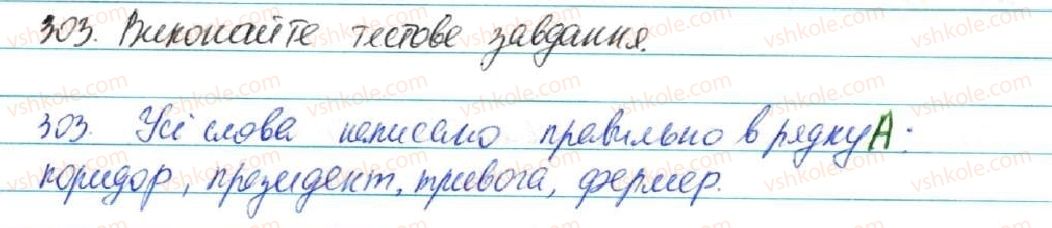 303. Виконайте тестове завдання.
303. Усі слова написано правильно в рядку А:
коридор, президент, тривога, фермер.
vshkole.com